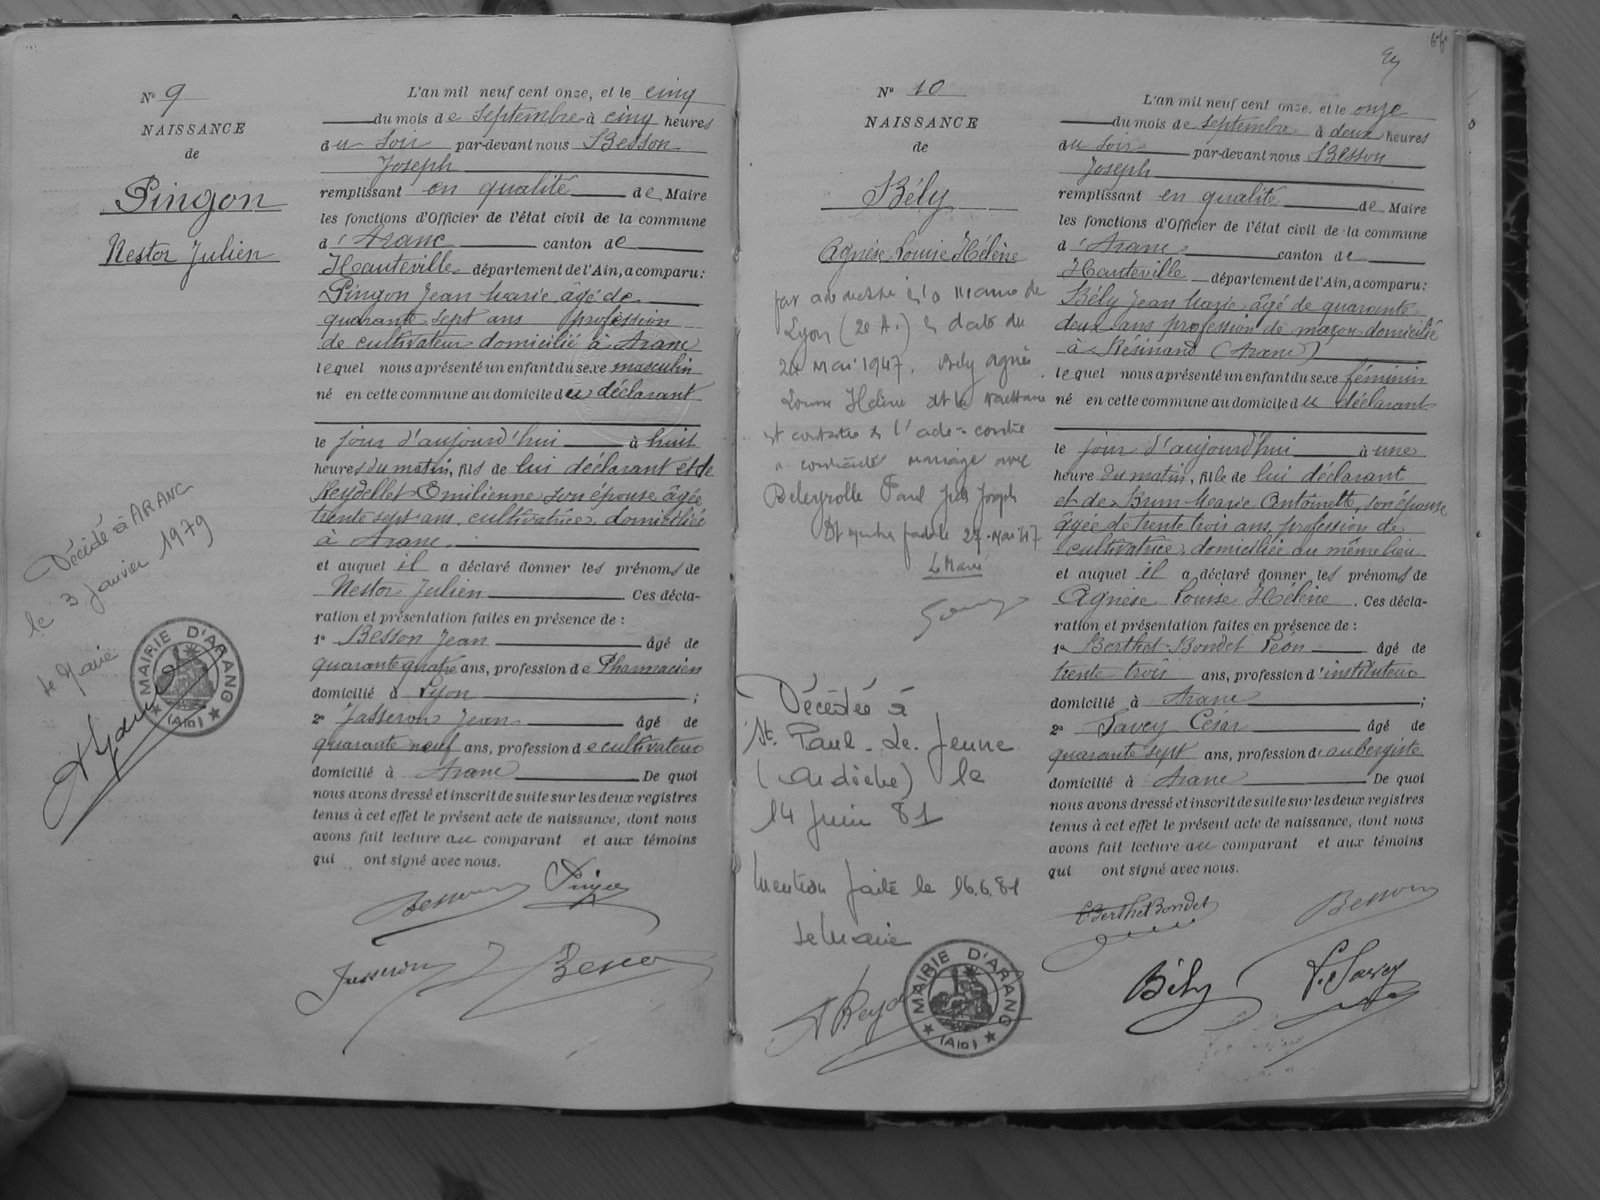 Nº 9
NAISSANCE
de
Pingon
Nestor Julien
Décédé à ARANC
le 3 Janvier 1979
le Maire
MAIRIE D'ARANC
(Ain)
L'an mil neuf cent onze, et le cinq
du mois de Septembre à cinq heures
du Soir par-devant nous Besson
Joseph
remplissant en qualité de Maire
les fonctions d'Officier de l'état civil de la commune
d'Aranc canton de
Hauteville département de l'Ain, a comparu:
Pingon Jean Marie âgé de
quarante sept ans profession
de cultivateur domicilié à Aranc
lequel nous a présenté un enfant du sexe masculin
né en cette commune au domicile du déclarant
le jour d'aujourd'hui à huit
heures du matin, fils de lui déclarant et de
Reydellet Emilienne son épouse âgée
trente sept ans, cultivatrice, domiciliée
à Aranc.
et auquel il a déclaré donner les prénoms de
Nestor Julien Ces décla-
ration et présentation faites en présence de :
1º Besson Jean âgé de
quarante quatre ans, profession de Pharmacien
domicilié à Lyon ;
2º Jasseron Jean âgé de
quarante neuf ans, profession de cultivateur
domicilié à Aranc De quoi
nous avons dressé et inscrit de suite sur les deux registres
tenus à cet effet le présent acte de naissance, dont nous
avons fait lecture au comparant et aux témoins
qui ont signé avec nous.
Besson Pingon
Jasseron J Besson
Nº 10
NAISSANCE
de
Bély
Agnèse Louise Hélène
Lyon (2e A.) en date du
Mai 1947, Bély Agnès
Louise Hélène dt la naissance
est constatée ds l'acte contre
a contracté mariage avec
Paul Joseph
27 Mai 47
Le Maire
Décédée à
St. Paul-le-Jeune
(Ardèche) le
14 Juin 81
Mention faite le 16.6.81
le Maire
MAIRIE D'ARANC
(Ain)
L'an mil neuf cent onze, et le onze
du mois de septembre à deux heures
du Soir par-devant nous Besson
Joseph
remplissant en qualité de Maire
les fonctions d'Officier de l'état civil de la commune
d'Aranc canton de
Hauteville département de l'Ain, a comparu:
Bély Jean Marie âgé de quarante
deux ans profession de maçon domicilié
à Résinand (Aranc)
lequel nous a présenté un enfant du sexe féminin
né en cette commune au domicile du déclarant
le jour d'aujourd'hui à une
heure du matin, fille de lui déclarant
et de Brun Marie Antoinette, son épouse
âgée de trente trois ans, profession de
cultivatrice, domiciliée au même lieu
et auquel il a déclaré donner les prénoms de
Agnèse Louise Hélène. Ces décla-
ration et présentation faites en présence de :
1º Berthet-Bondet Léon âgé de
trente trois ans, profession d'instituteur
domicilié à Aranc ;
2º Savey César âgé de
quarante sept ans, profession d'aubergiste
domicilié à Aranc De quoi
nous avons dressé et inscrit de suite sur les deux registres
tenus à cet effet le présent acte de naissance, dont nous
avons fait lecture au comparant et aux témoins
qui ont signé avec nous.
Berthet Bondet Besson
Bély Savey